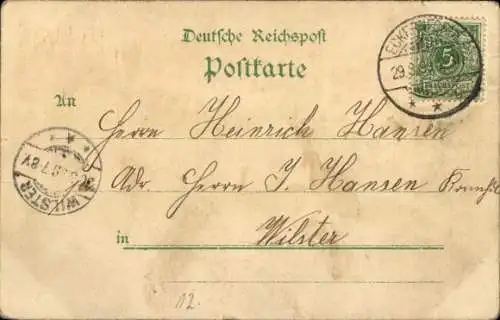 Deutsche Reichspost
Postkarte
An
Herrn Heinrich Hansen
Adr. Herrn J. Hansen
in Wilster
12.
5
29.
WILSTER